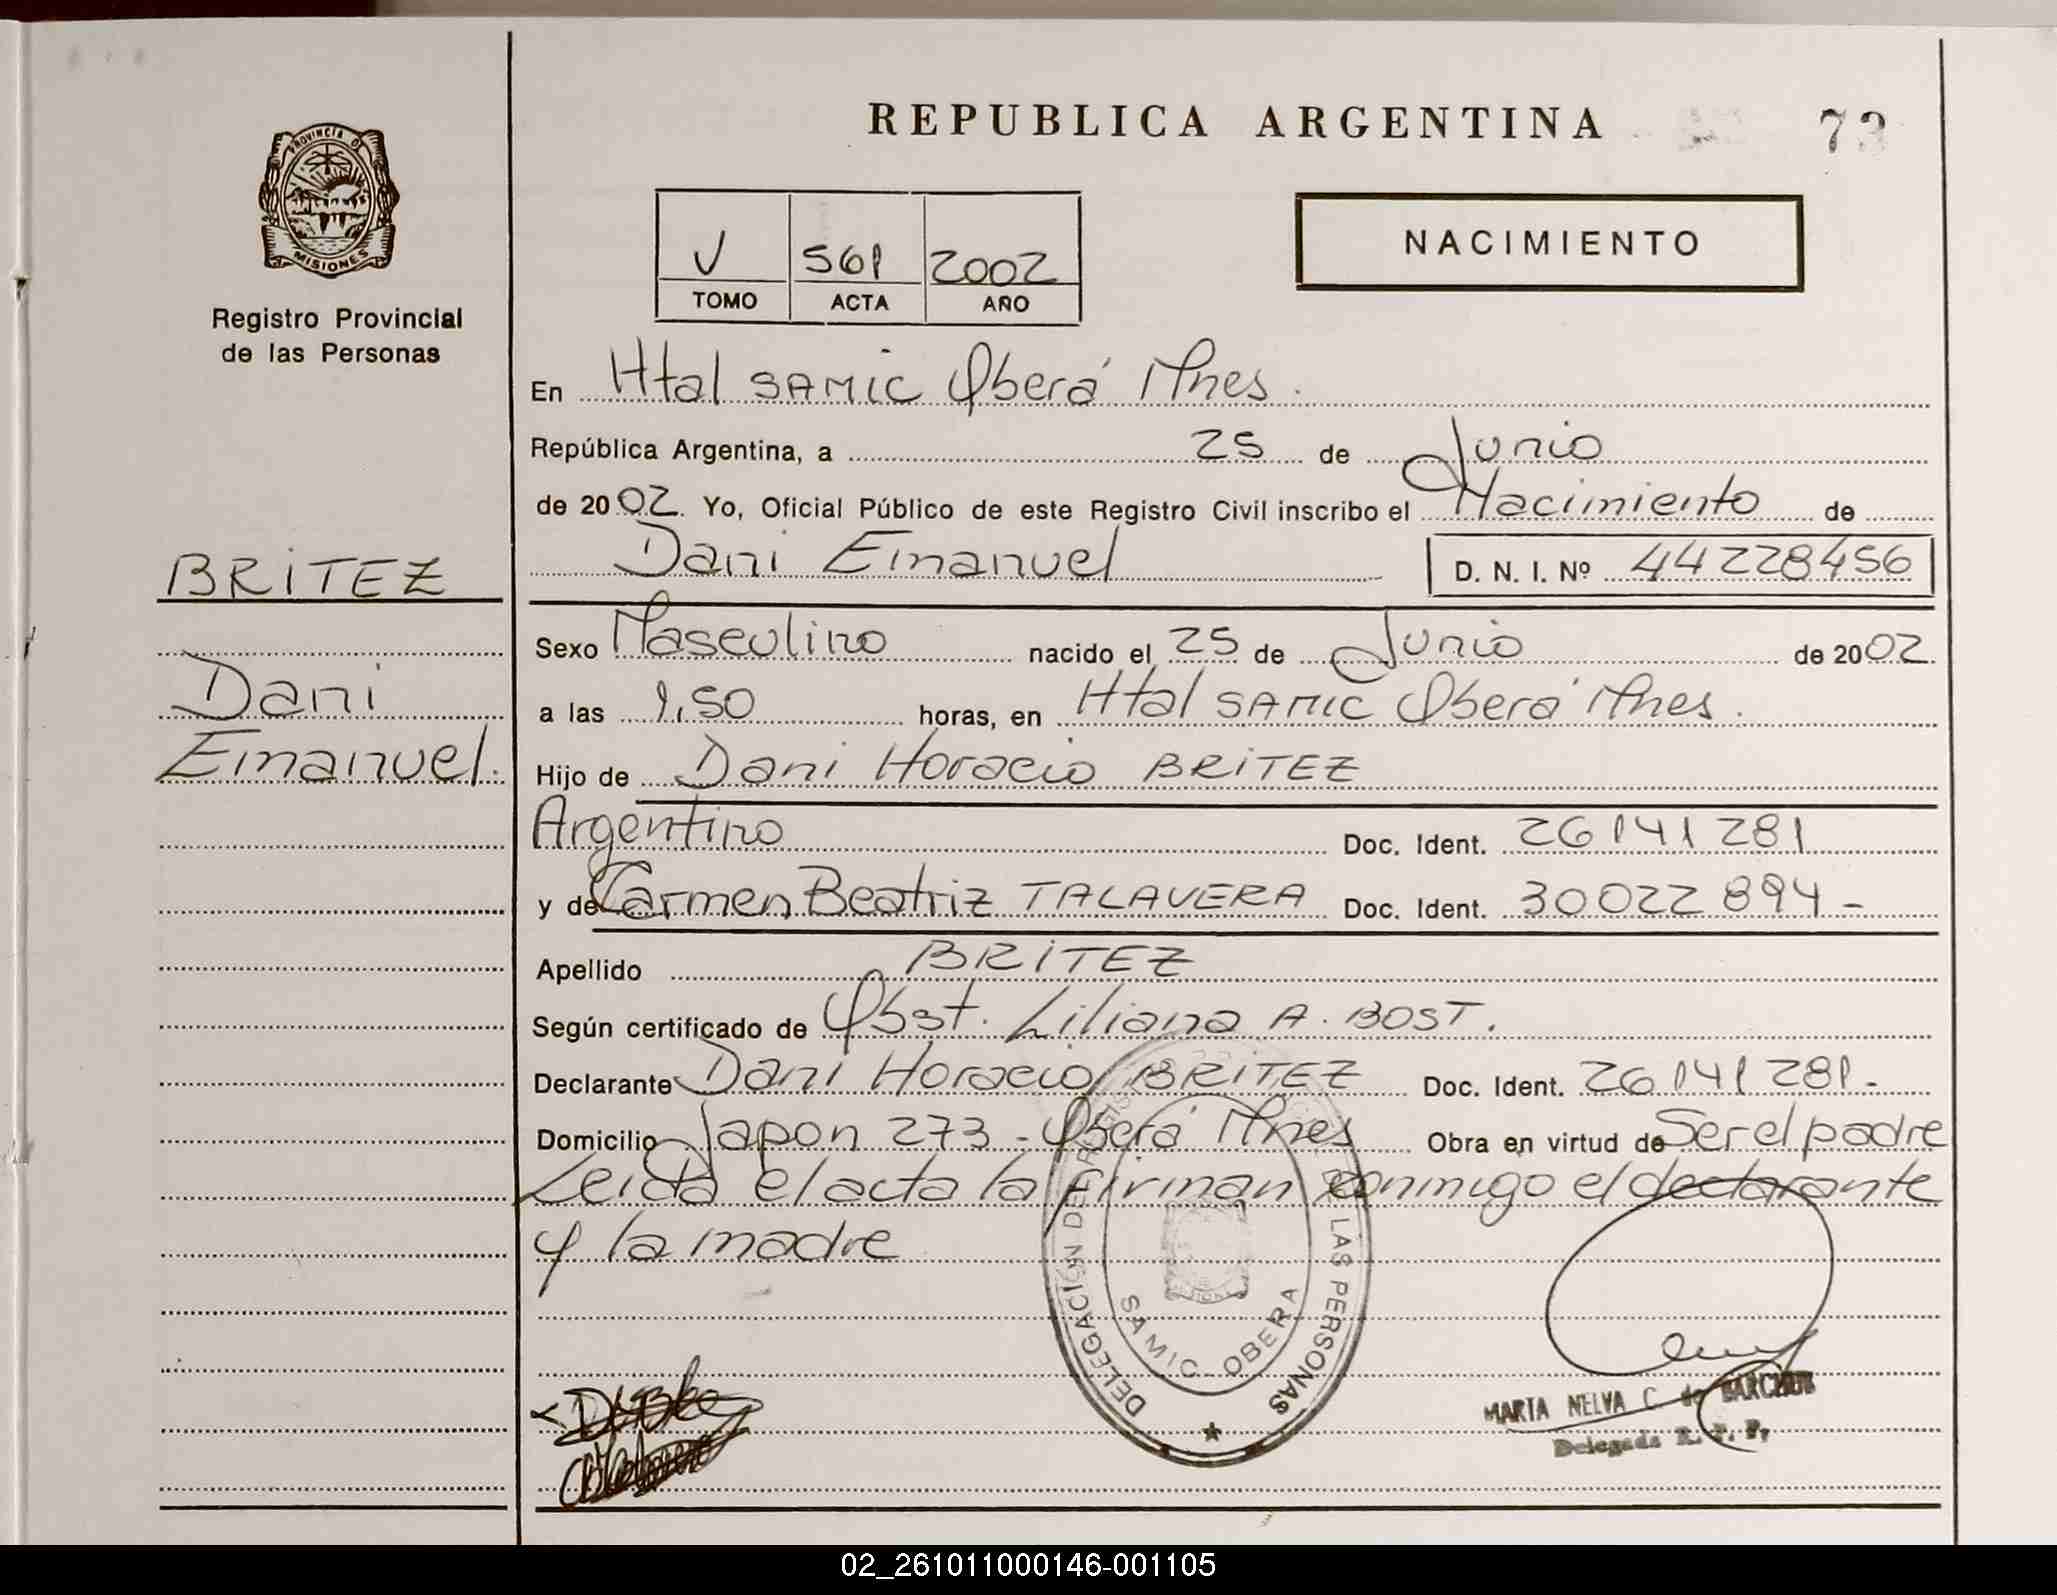 REPUBLICA ARGENTINA
73
PROVINCIA DE
MISIONES
Registro Provincial
de las Personas
V 561 2002
TOMO ACTA AÑO
NACIMIENTO
En Htal SAMIC Oberá Mnes.
República Argentina, a 25 de Junio
de 2002. Yo, Oficial Público de este Registro Civil inscribo el Nacimiento de
Dani Emanuel D. N. I. Nº 44228456
BRITEZ
Dani
Emanuel.
Sexo Masculino nacido el 25 de Junio de 2002.
a las 1,50 horas, en Htal SAMIC Oberá Mnes.
Hijo de Dani Horacio BRITEZ
Argentino Doc. Ident. 26141281
y de Carmen Beatriz TALAVERA Doc. Ident. 30022894-
Apellido BRITEZ
Según certificado de Obst. Liliana A. BOST.
Declarante Dani Horacio BRITEZ Doc. Ident. 26141281-
Domicilio Japon 273 - Oberá Mnes Obra en virtud de Ser el padre
Leida el acta la firman conmigo el declarante
y la madre
DELEGACIÓN DEL REGISTRO DE LAS PERSONAS
SAMIC - OBERA
MARTA NELVA C. de
Delegada R. P. P.
02_261011000146-001105